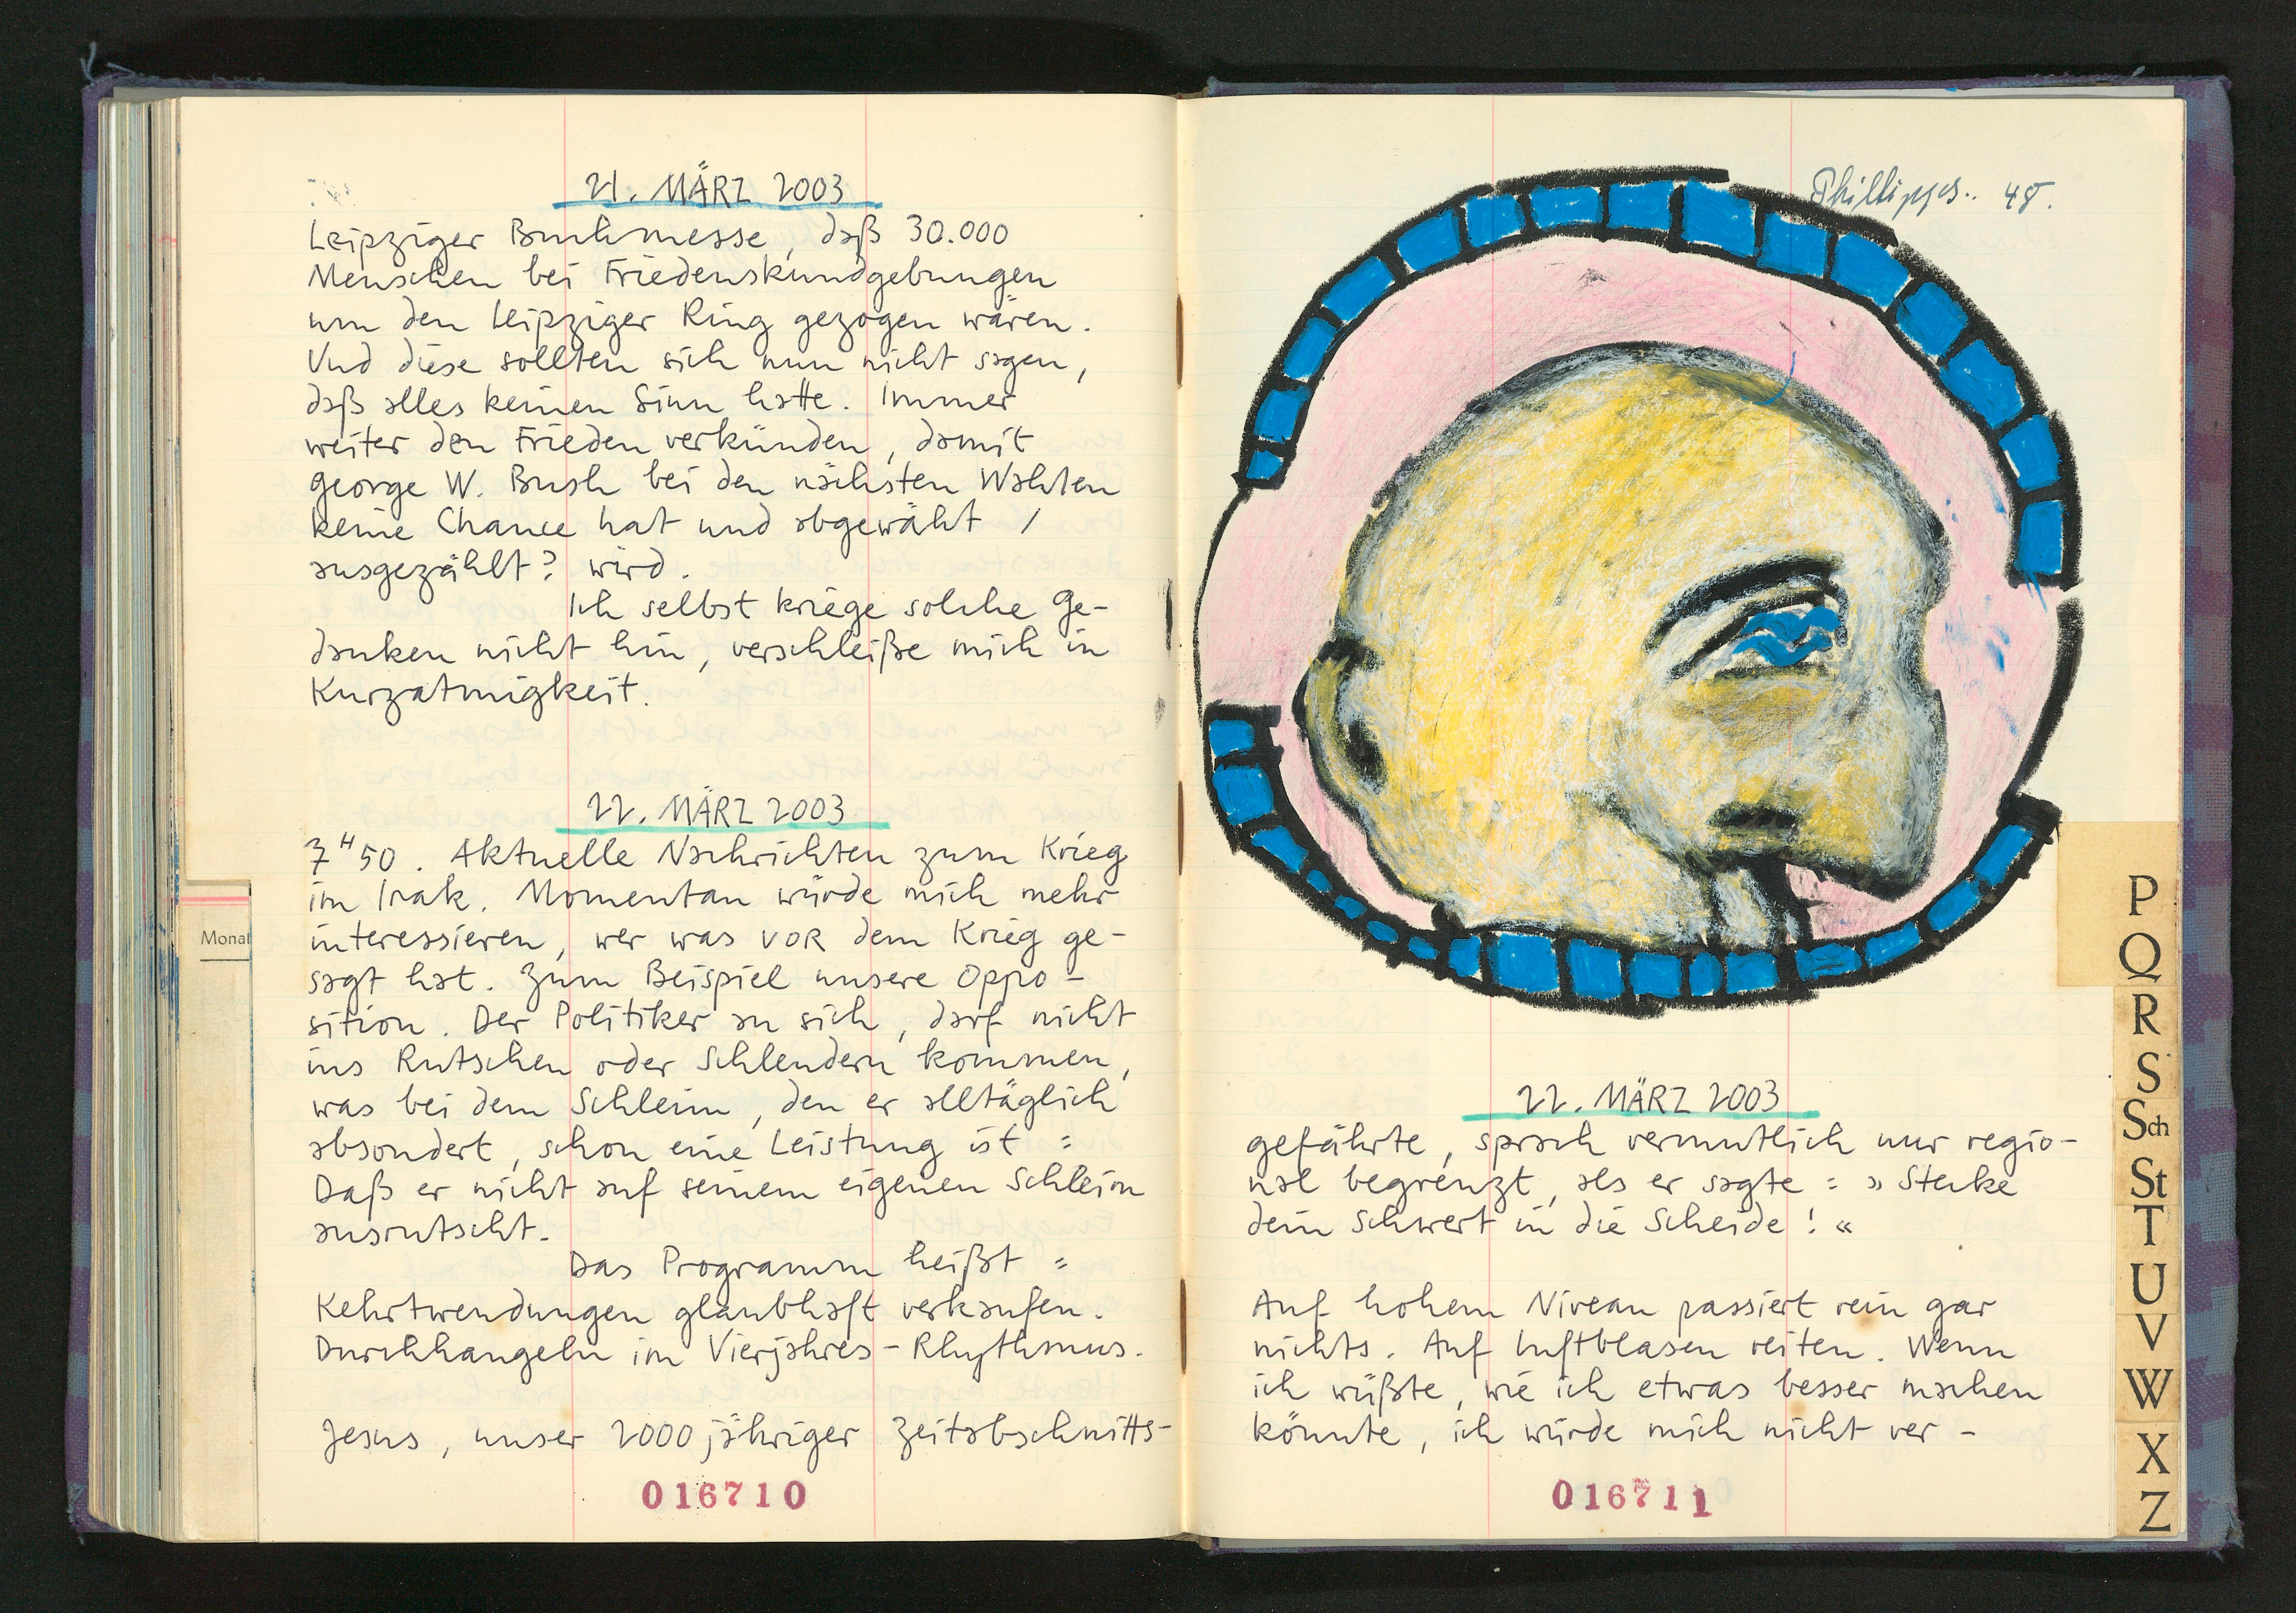 21. MÄRZ 2003
Leipziger Buchmesse, daß 30.000
Menschen bei Friedenskundgebungen
um den Leipziger Ring gezogen wären.
Und diese sollten sich nun nicht sagen,
daß alles keinen Sinn hatte. Immer
weiter den Frieden verkünden, damit
George W. Bush bei den nächsten Wahlen
keine Chance hat und abgewählt /
ausgezählt? wird.
Ich selbst kriege solche Ge-
danken nicht hin, verschleiße mich in
Kurzatmigkeit.
22. MÄRZ 2003
7 H 50. Aktuelle Nachrichten zum Krieg
im Irak. Momentan würde mich mehr
interessieren, wer was VOR dem Krieg ge-
sagt hat. Zum Beispiel unsere Oppo-
sition. Der Politiker an sich, darf nicht
ins Rutschen oder Schlendern kommen,
was bei dem Schleim, den er alltäglich
absondert, schon eine Leistung ist :
Daß er nicht auf seinem eigenen Schleim
ausrutscht.
Das Programm heißt :
Kehrtwendungen glaubhaft verkaufen.
Durchhangeln im Vierjahres-Rhythmus.
Jesus, unser 2000jähriger Zeitabschnitts-
016710
Monat
Phillippes.. 48.
22. MÄRZ 2003
gefährte, sprach vermutlich nur regio-
nal begrenzt, als er sagte : »Stecke
dein Schwert in die Scheide!«
Auf hohem Niveau passiert rein gar
nichts. Auf Luftblasen reiten. Wenn
ich wüßte, wie ich etwas besser machen
könnte, ich würde mich nicht ver-
016711
P
Q
R
S
Sch
St
T
U
V
W
X
Z